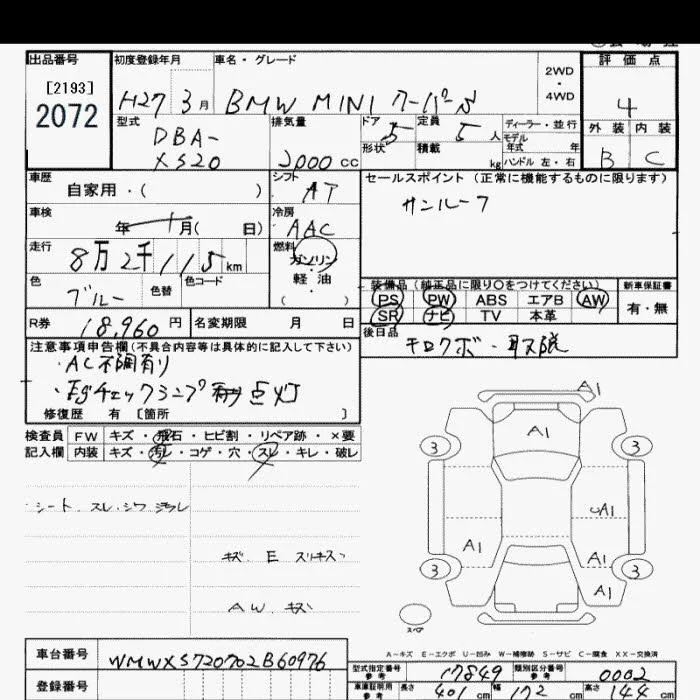 出品番号 初度登録年月 車名・グレード 2WD・4WD 評価点
[2193]
2072
H27 3月 BMW MINI クーパーS 4
型式 排気量 ドア 定員 ディーラー・並行 外装 内装
DBA-XS20 2000 cc 5 5人 モデル年式 年 B C
形状 積載 kg ハンドル 左・右
車歴 自家用・( ) シフト AT セールスポイント (正常に機能するものに限ります)
サンルーフ
車検 年 月( 日) 冷房 AAC
走行 8万2千115km 燃料 ガソリン・軽油( )
色 ブルー 色替 色コード
装備品 (純正品に限り○をつけてください) 新車保証書
PS PW ABS エアB AW 有・無
SR ナビ TV 本革
R券 18,960円 名変期限 月 日 後日品
注意事項申告欄(不具合内容等は具体的に記入して下さい)
・AC不調有り
・Egチェックランプ 点灯
修復歴 有 [箇所 ]
検査員 FW キズ・飛石・ヒビ割・リペア跡・×要
記入欄 内装 キズ・汚レ・コゲ・穴・スレ・キレ・破レ
シート スレ シワ ヨゴレ
キズ E スリキズ
AW キズ
A1
A1
3 3
A1
A1 A1
3 3
A1
スペア
A-キズ E-エクボ U-凹み W-補修跡 S-サビ C-腐食 XX-交換済
車台番号 WMWXS720702B60976
型式指定番号 参考 17849 類別区分番号 参考 0002
登録番号 車庫証明用 参考 長さ 401 cm 幅 172 cm 高さ 144 cm